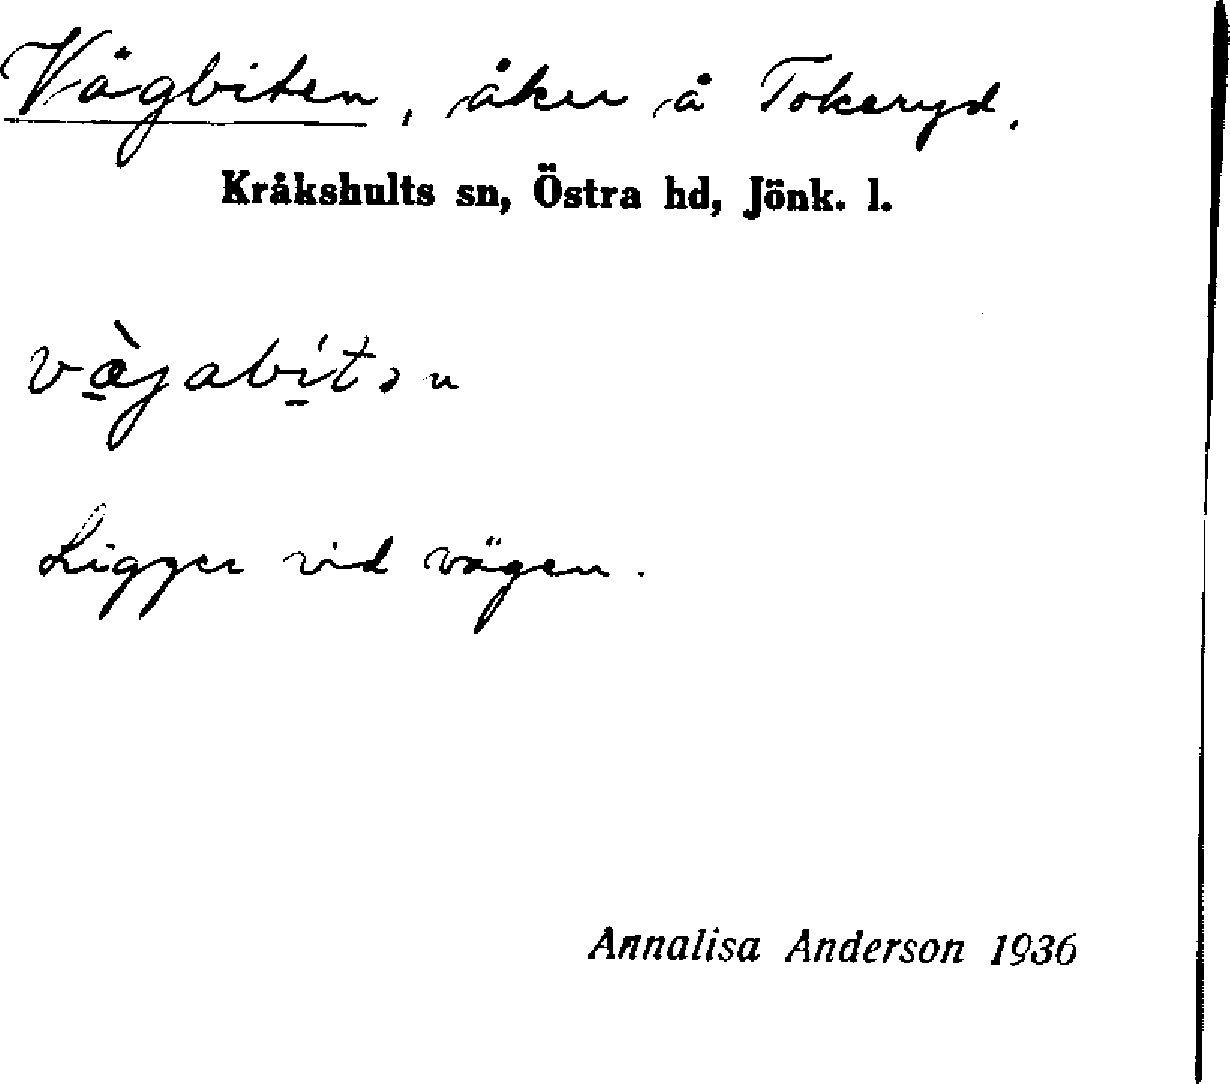 Vägbiten, åker å Tokeryd.
Kråkshults sn, Östra hd, Jönk. l.
væ̀jabítən
Ligger vid vägen.
Annalisa Anderson 1936